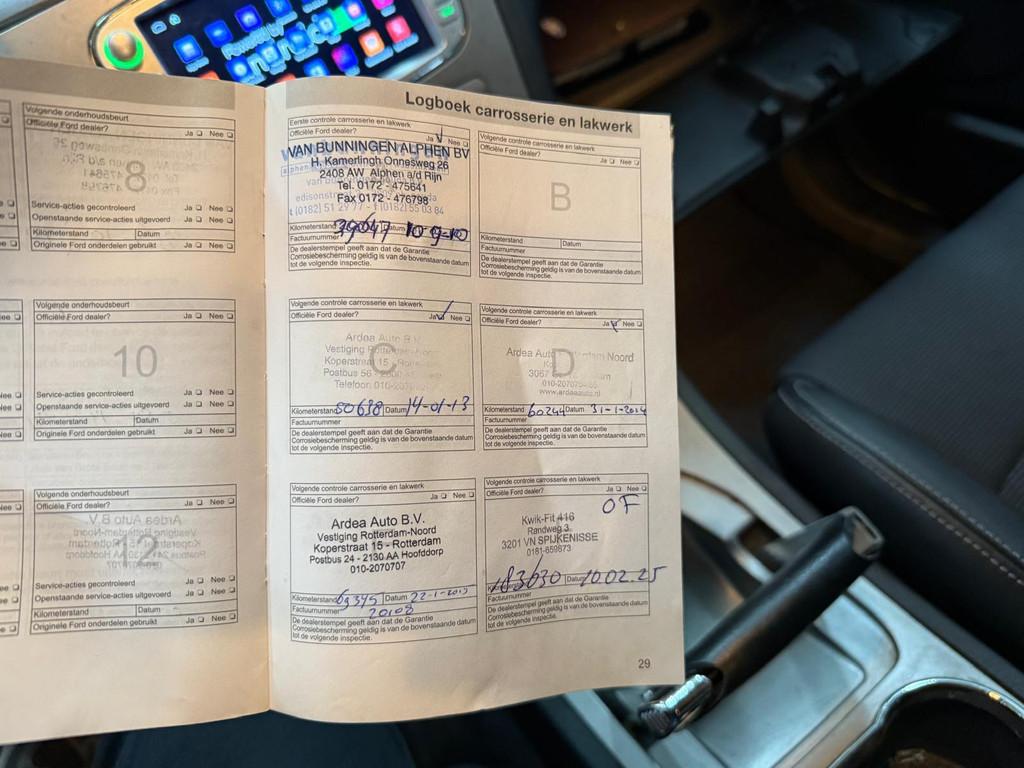 Volgende onderhoudsbeurt
Officiële Ford dealer? Ja Nee
8
Service-acties gecontroleerd Ja Nee
Openstaande service-acties uitgevoerd Ja Nee
Kilometerstand Datum
Originele Ford onderdelen gebruikt Ja Nee
Volgende onderhoudsbeurt
Officiële Ford dealer? Ja Nee
10
Service-acties gecontroleerd Ja Nee
Openstaande service-acties uitgevoerd Ja Nee
Kilometerstand Datum
Originele Ford onderdelen gebruikt Ja Nee
Volgende onderhoudsbeurt
Officiële Ford dealer? Ja Nee
12
Service-acties gecontroleerd Ja Nee
Openstaande service-acties uitgevoerd Ja Nee
Kilometerstand Datum
Originele Ford onderdelen gebruikt Ja Nee
Logboek carrosserie en lakwerk
Eerste controle carrosserie en lakwerk
Officiële Ford dealer? Ja Nee
VAN BUNNINGEN ALPHEN BV
H. Kamerlingh Onnesweg 26
2408 AW Alphen a/d Rijn
Tel. 0172 - 475641
Fax 0172 - 476798
Kilometerstand 39647 Datum 10-9-10
Factuurnummer
De dealerstempel geeft aan dat de Garantie
Corrosiebescherming geldig is van de bovenstaande datum
tot de volgende inspectie.
Volgende controle carrosserie en lakwerk
Officiële Ford dealer? Ja Nee
B
Kilometerstand Datum
Factuurnummer
De dealerstempel geeft aan dat de Garantie
Corrosiebescherming geldig is van de bovenstaande datum
tot de volgende inspectie.
Volgende controle carrosserie en lakwerk
Officiële Ford dealer? Ja Nee
C
Ardea Auto B.V.
Vestiging Rotterdam-Noord
Koperstraat 15 -
Postbus 56 -
Telefoon 010-
Kilometerstand 50638 Datum 14-01-13
Factuurnummer
De dealerstempel geeft aan dat de Garantie
Corrosiebescherming geldig is van de bovenstaande datum
tot de volgende inspectie.
Volgende controle carrosserie en lakwerk
Officiële Ford dealer? Ja Nee
D
Ardea Auto Noord
3067
www.ardeaauto.nl
Kilometerstand 60244 Datum 31-1-2014
Factuurnummer
De dealerstempel geeft aan dat de Garantie
Corrosiebescherming geldig is van de bovenstaande datum
tot de volgende inspectie.
Volgende controle carrosserie en lakwerk
Officiële Ford dealer? Ja Nee
Ardea Auto B.V.
Vestiging Rotterdam-Noord
Koperstraat 15 - Rotterdam
Postbus 24 - 2130 AA Hoofddorp
010-2070707
Kilometerstand 69345 Datum 22-1-2015
Factuurnummer 20108
De dealerstempel geeft aan dat de Garantie
Corrosiebescherming geldig is van de bovenstaande datum
tot de volgende inspectie.
Volgende controle carrosserie en lakwerk
Officiële Ford dealer? Ja Nee
OF
Kwik-Fit 416
Randweg 3
3201 VN SPIJKENISSE
0181-659873
183630 Datum 20.02.25
Factuurnummer
De dealerstempel geeft aan dat de Garantie
Corrosiebescherming geldig is van de bovenstaande datum
tot de volgende inspectie.
29